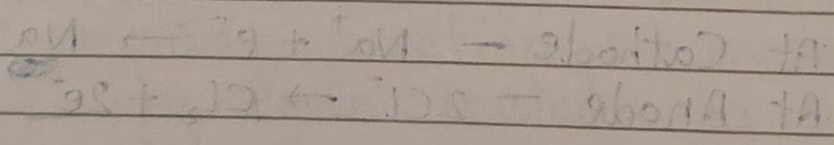 At Cathode - Na⁺ + e⁻ → Na
At Anode - 2Cl⁻ → Cl₂ + 2e⁻